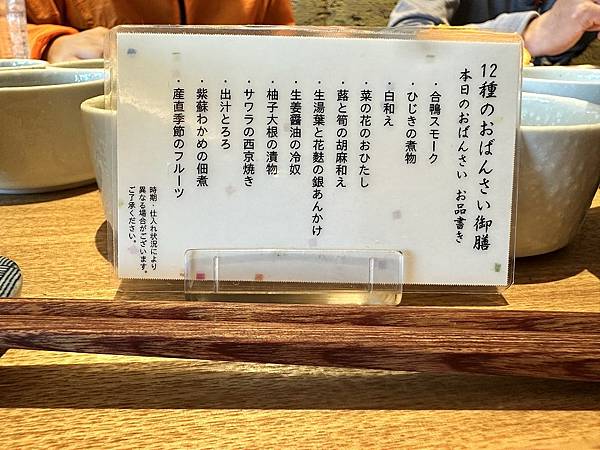 12種のおばんさい御膳
本日のおばんさい お品書き
・合鴨スモーク
・ひじきの煮物
・白和え
・菜の花のおひたし
・蕗と筍の胡麻和え
・生湯葉と花麩の銀あんかけ
・生姜醤油の冷奴
・柚子大根の漬物
・サワラの西京焼き
・出汁とろろ
・紫蘇わかめの佃煮
・産直季節のフルーツ
時期・仕入れ状況により
異なる場合がございます。
ご了承ください。